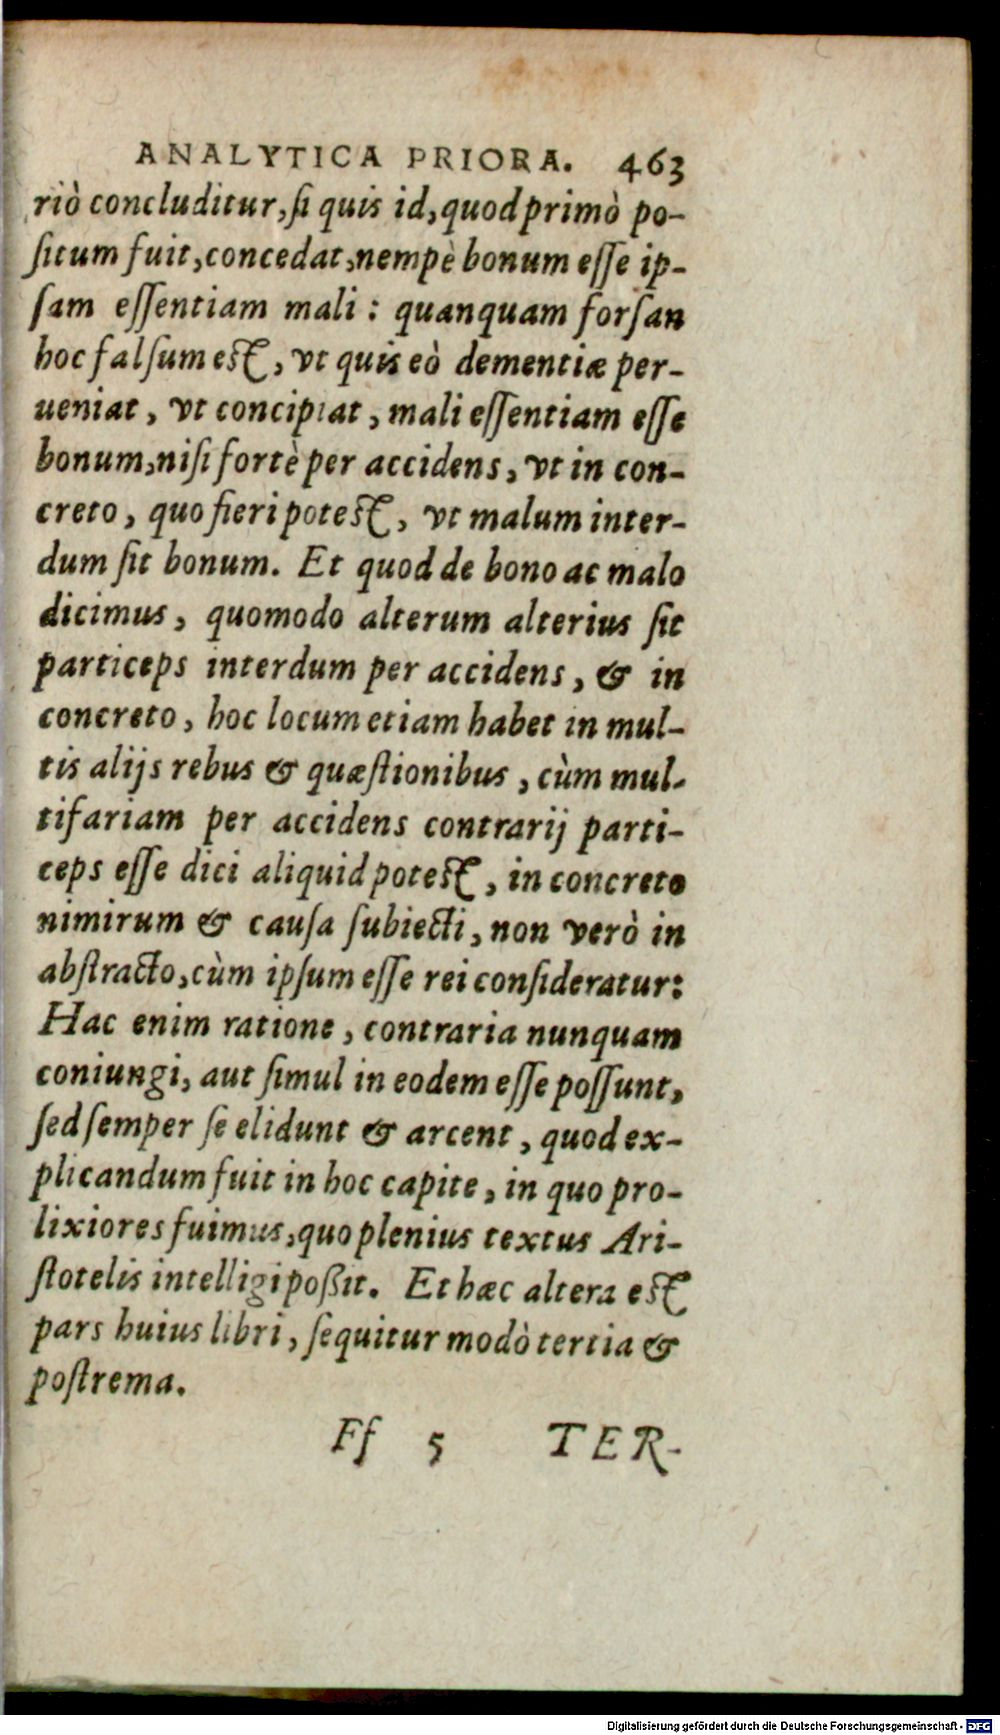 ANALYTICA PRIORA. 463
riò concluditur, ſi quis id, quod primò po-
ſitum fuit, concedat, nempè bonum eſſe ip-
ſam eſſentiam mali : quanquam forſan
hoc falſum eſt, vt quis eò dementiæ per-
ueniat, vt concipiat, mali eſſentiam eſſe
bonum, niſi fortè per accidens, vt in con-
creto, quo fieri poteſt, vt malum inter-
dum ſit bonum. Et quod de bono ac malo
dicimus, quomodo alterum alterius ſit
particeps interdum per accidens, & in
concreto, hoc locum etiam habet in mul-
tis alijs rebus & quæſtionibus, cùm mul-
tifariam per accidens contrarij parti-
ceps eſſe dici aliquid poteſt, in concreto
nimirum & cauſa ſubiecti, non verò in
abſtracto, cùm ipſum eſſe rei conſideratur:
Hac enim ratione, contraria nunquam
coniungi, aut ſimul in eodem eſſe poſſunt,
ſed ſemper ſe elidunt & arcent, quod ex-
plicandum fuit in hoc capite, in quo pro-
lixiores fuimus, quo plenius textus Ari-
ſtotelis intelligi poßit. Et hæc altera eſt
pars huius libri, ſequitur modò tertia &
poſtrema.
Ff 5 TER-
Digitalisierung gefördert durch die Deutsche Forschungsgemeinschaft - DFG